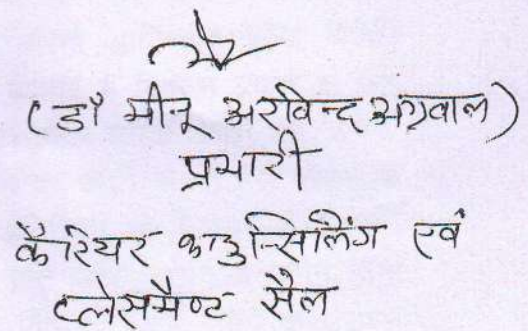 (डॉ मीनू अरविन्द अग्रवाल)
प्रभारी
कैरियर काउन्सिलिंग एवं
प्लेसमैण्ट सैल